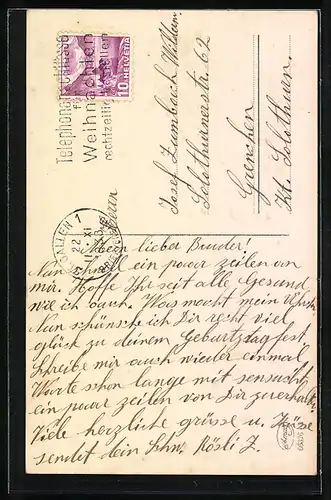 Telephonanschlüsse
für
Weihnachten
rechtzeitig bestellen
HELVETIA
10
ST. GALLEN 1
22 XI
Josef Zumbach
Solothurnerstr. 62
Grenchen
Kt. Solothurn
Mein lieber Bruder!
Nun schnell ein paar zeilen an
mir. Hoffe Ihr seit alle Gesund
wie ich auch. Was macht mein
Nun schünsche ich Dir recht viel
glück zu deinem Geburtstagfest
Schreibe mir auch wieder einmal
Warte schon lange mit sensucht
ein paar zeilen von Dir zu erhalt
Viele herzliche grüsse u. Küsse
sendet dein Schw. Rösli Z.